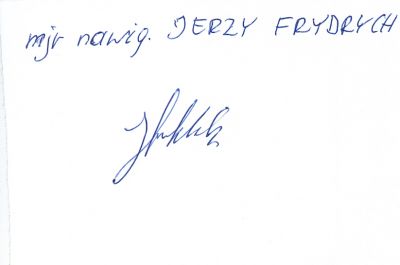 mjr nawig. JERZY FRYDRYCH